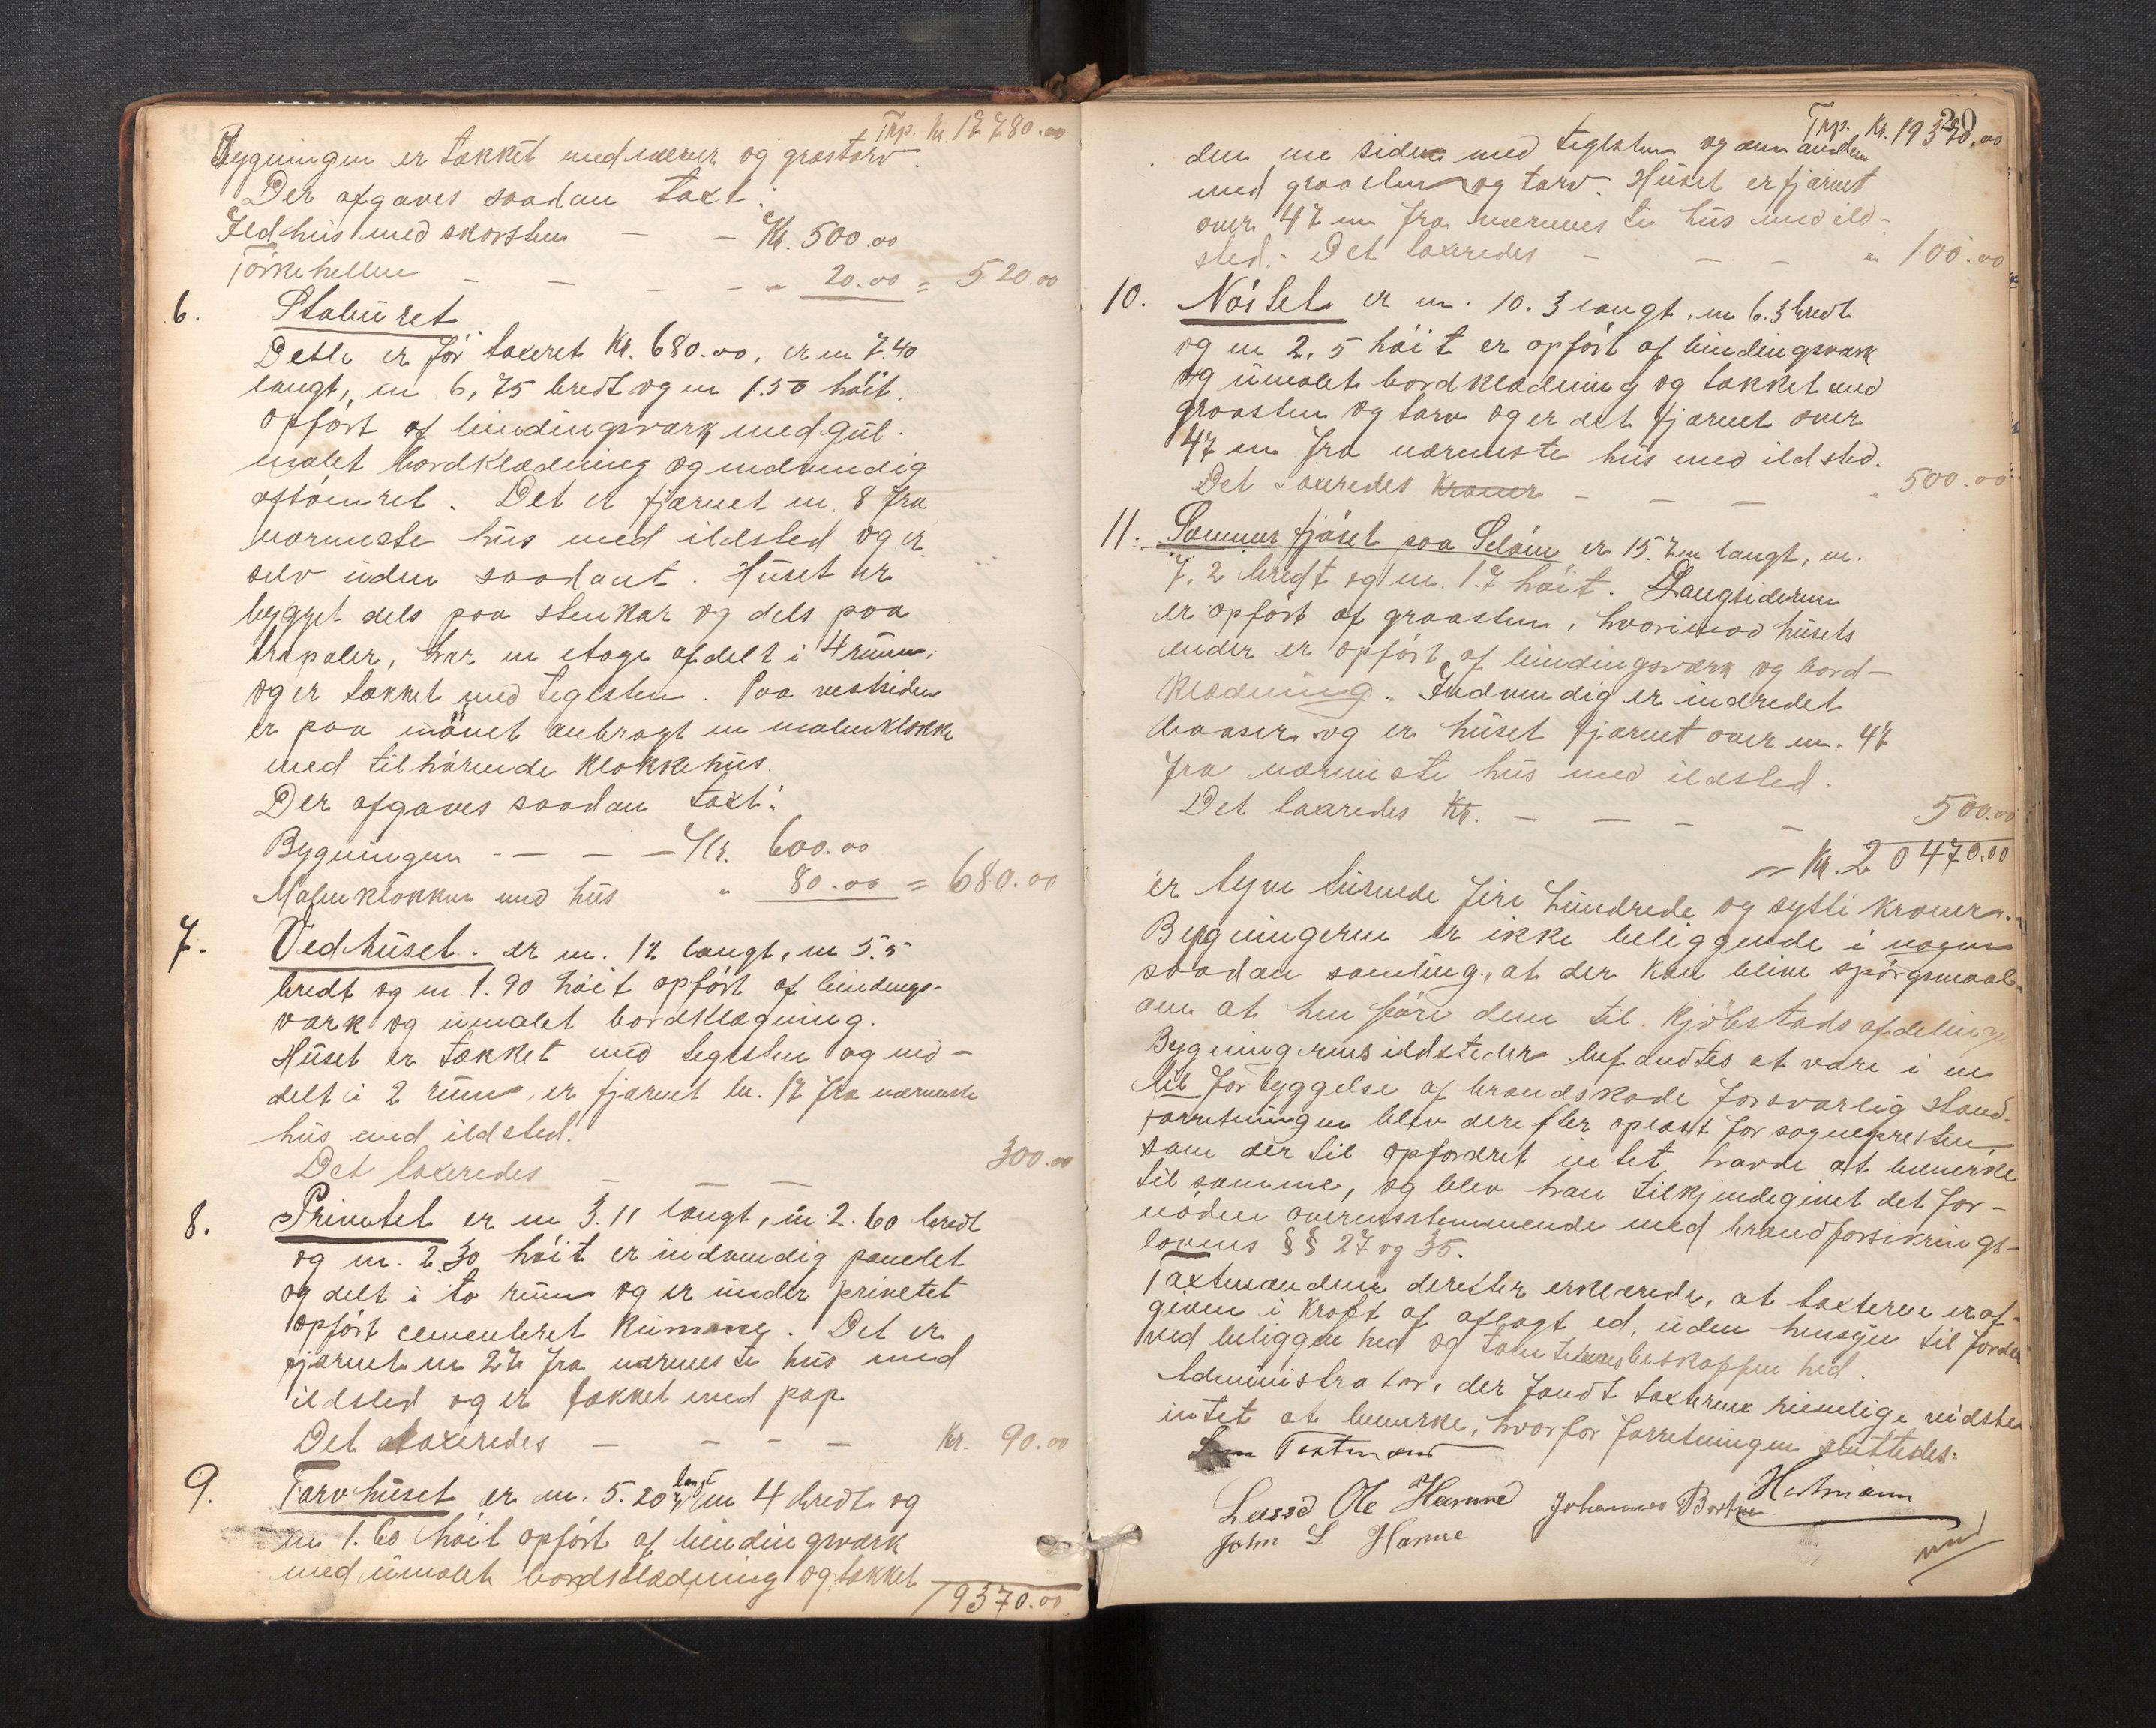 Trp. Kr. 17780.00
Bygningen er tækket med næver og græstorv.
Der afgaves saadan taxt:
Ildhus med skorsten — — Kr. 500.00
Törkehellen — — — — „ 20.00 = 520.00
6. Stabüret
Dette er för taxeret Kr. 680.00, er m 7.40
langt, m 6,75 bredt og m 1.50 höit,
opfört af bindingsværk med gül-
malet bordklædning og indvendig
aftömret. Det er fjærnet m. 8 fra
nærmeste hüs med ildsted og er
selv üden saadant. Hüset er
bygget dels paa stenkar og dels paa
træpæler, har en etage afdelt i 4 rüm,
og er tækket med teglsten. Paa vestsiden
er paa mönet anbragt en malmklokke
med tilhörende klokkehüs.
Der afgaves saadan taxt:
Bygningen - — — — Kr. 600.00
Malmklokken med hüs „ 80.00 = 680.00
7. Vedhüset. er m. 12 langt, m 5.5
bredt og m. 1.90 höit opfört af bindings-
værk og ümalet bordklægning.
Hüset er tækket med teglsten og ind-
delt i 2 rüm, er fjærnet m. 17 fra nærmeste
hüs med ildsted.
Det taxeredes — — — 300.00
8. Privetet er m 3.11 langt, m 2.60 bredt
og m. 2.30 höit er indvendig panelet
og delt i to rüm og er ünder privetet
opfört cementeret kümme. Det er
fjærnet m 27 fra nærmeste hüs med
ildsted og er tækket med pap
Det taxeredes — — — — Kr. 90.00
9. Torvhüset er m. 5.20 langt m 4 bredt og
m 1.60 höit opfört af bindingsværk
med ümalet bordklædning og tækket
19370.00
20
Trp. Kr. 19370.00
den ene siden med teglsten og den anden
med graasten og torv. Hüset er fjærnet
over 47 m fra nærmeste hüs med ild-
sted. Det taxeredes — — — „ 100.00
10. Nöstet er m. 10.3 langt, m 6.3 bredt
og m 2,5 höit er opfört af bindingsværk
og ümalet bordklædning og tækket med
graasten og torv og er det fjærnet over
47 m fra nærmeste hüs med ildsted.
Det taxeredes Kroner — — — „ 500.00
11. Sommerfjöset paa Selöm er 15.7 m langt, m.
7,2 bredt og m. 1.7 höit. Langsiderne
er opfört af graasten, hvorimod hüsets
ender er opfört af bindingsværk og bord-
klædning. Indvendig er indredet
baaser og er hüset fjærnet over m. 47
fra nærmeste hüs med ildsted.
Det taxeredes Kr. — — — — 500.00
Kr. 20470.00
er tyve tüsende fire hündrede og sytti kroner.
Bygningerne er ikke beliggende i nogen
saadan samling, at der kan blive spörgsmaal
om at henföre dem til kjöbstadsafdelingen
Bygningernes ildsteder befandtes at være i en
til forbyggelse af brandskade forsvarlig stand.
Forretningen blev derefter oplæst for sognepresten
som dertil opfordret intet havde at bemerke
til samme, og blev han tilkjendegivet det for-
nödne overensstemmende med brandforsikrings-
lovens §§ 27 og 35.
Taxtmændene derefter erklærede, at taxterne er af-
given i kraft af aflagt ed, üden hensyn til fordel
ved beliggenhed og tomtebeskaffenhed.
Administrator, der fandt taxterne rimelige vidste
intet at bemerke, hvorfor forretningen slüttedes.
Som Taxtmænd
Lasse Ole Hamre Johannes Hartmann
John L Hamre